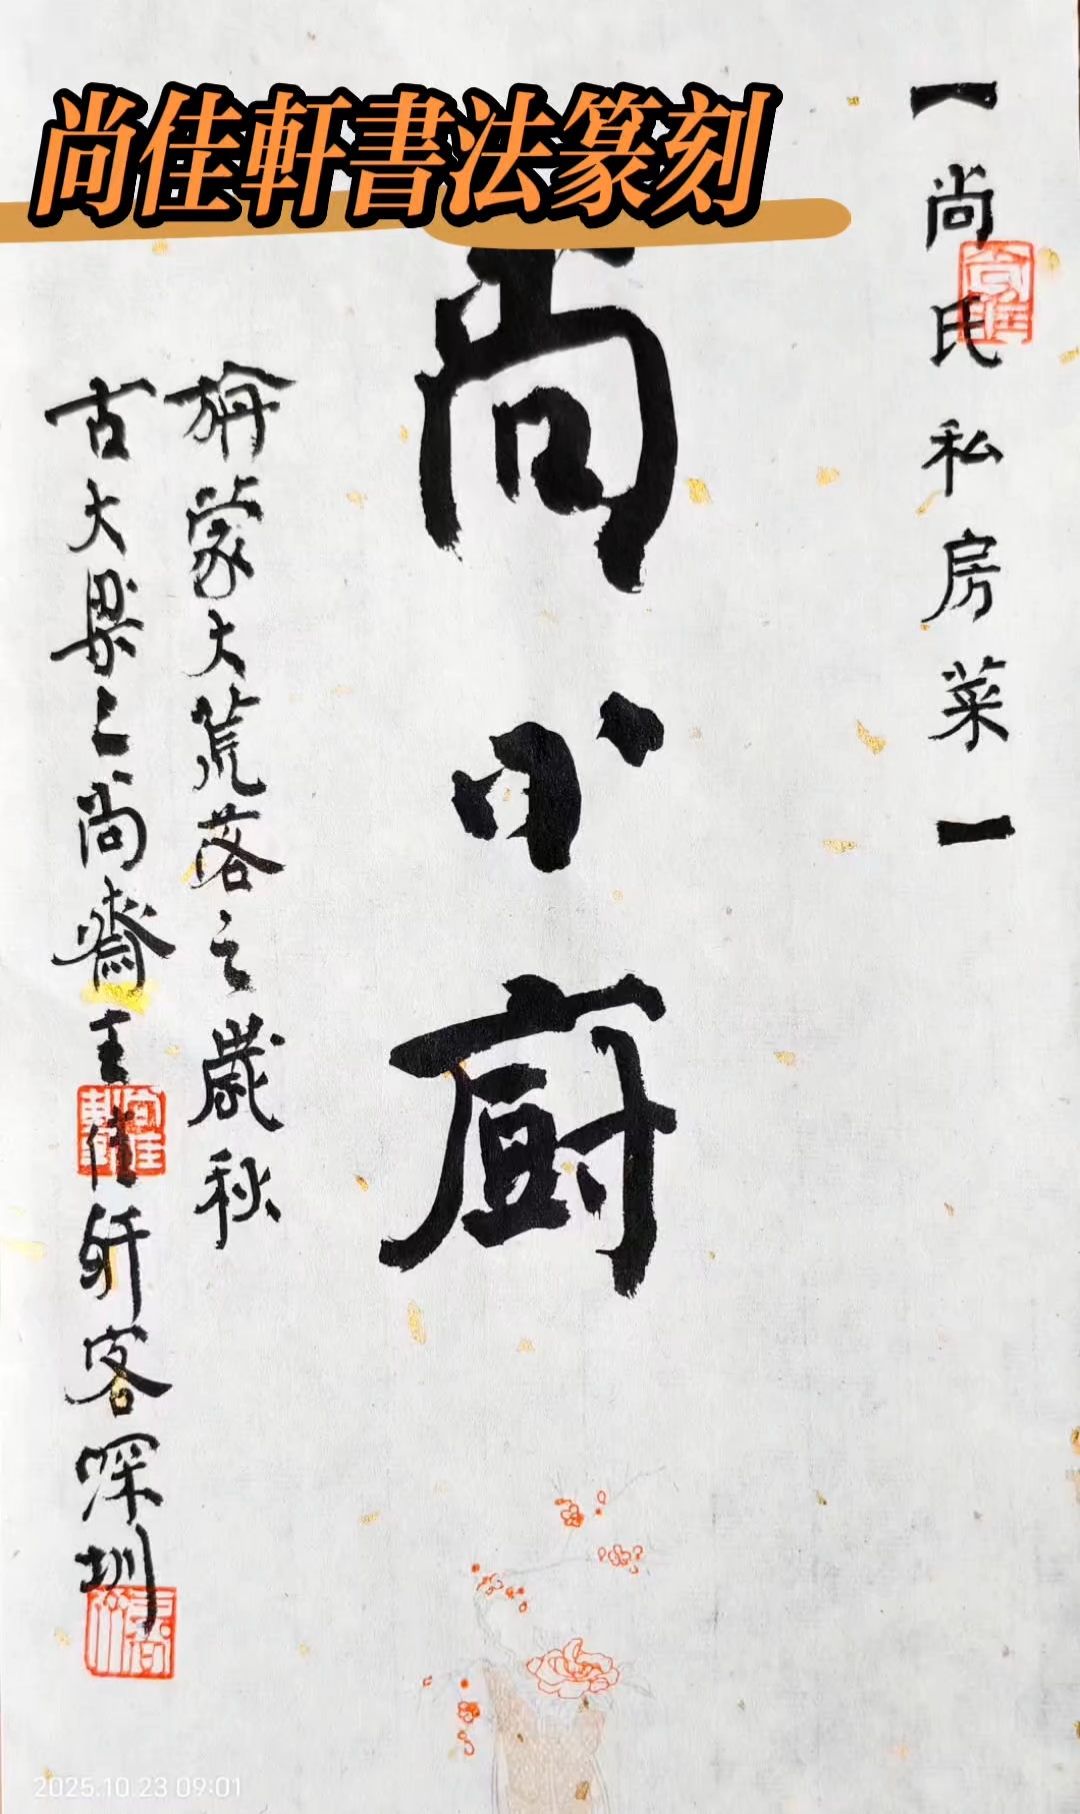 尚佳軒書法篆刻
【尚氏私房菜】
尚小厨
旃蒙大荒落之歲秋
古大梁之尚齋主佳軒客深圳
2025.10.23 09:01